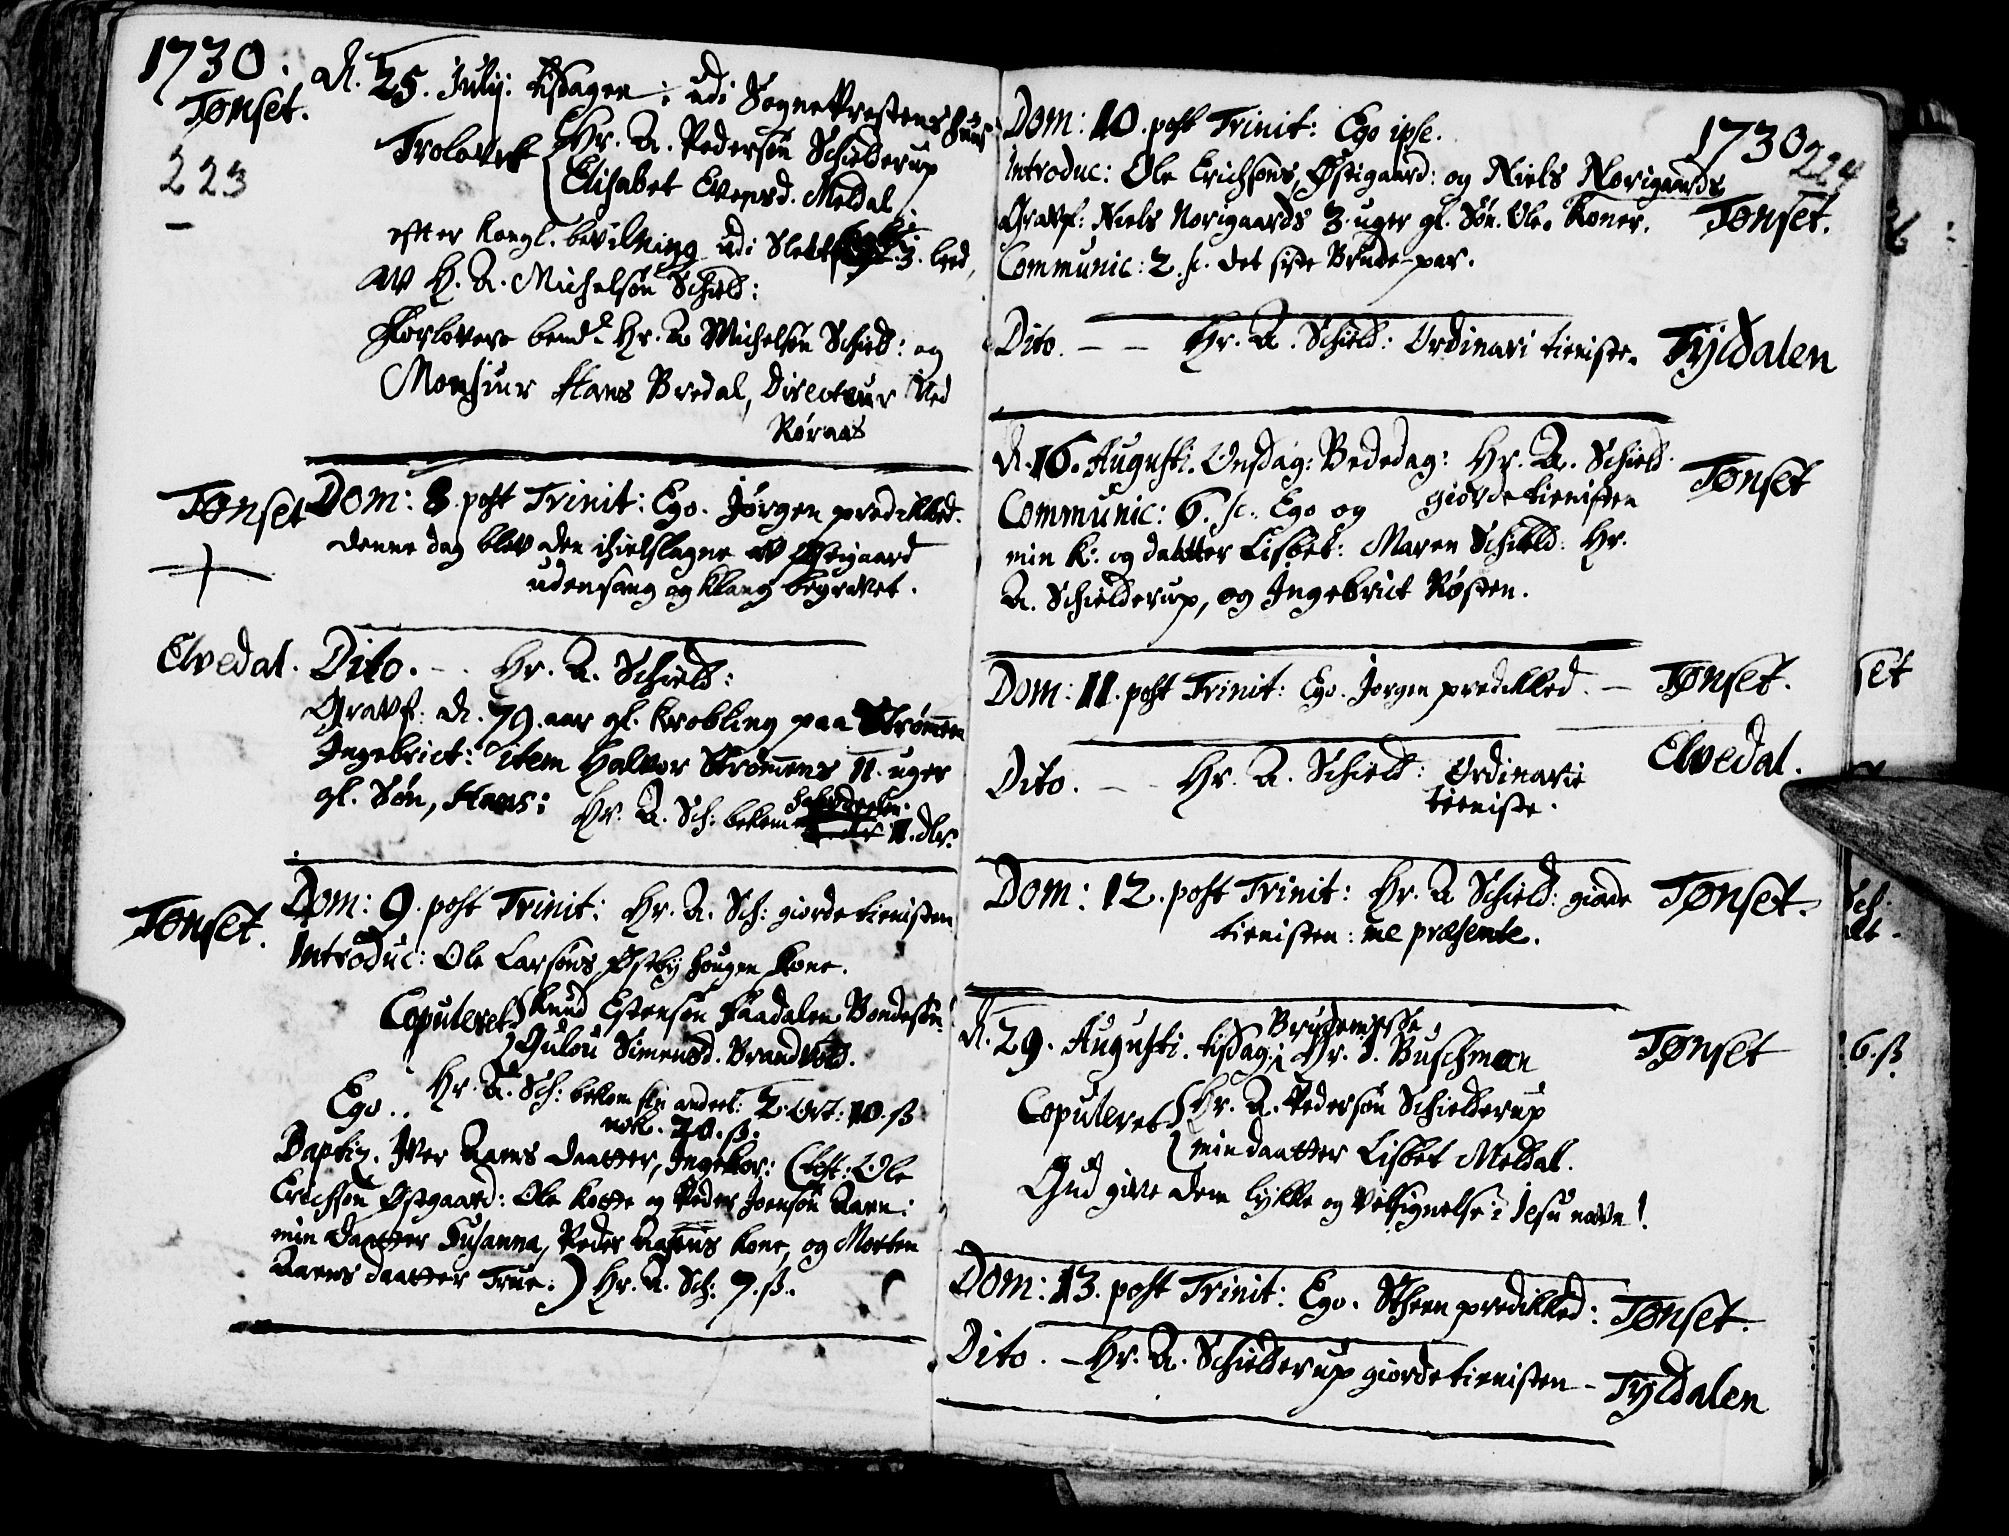 1730.
Tønset.
223
d. 25. Julij: tisdagen: udi SognePrestens huus
Trolovet Hr. A. Pedersøn Schielderup
Elisabet Evensd. Meldal
efter Kongl. bevilning udi Slect 3. leed,
av H. A. Michelsøn Schield:
Forlovere bemd. Hr. A Michelsøn Schield: og
Monsieur Hans Bredal, Directeur Ved
Røraas
Tønset Dom: 8. post Trinit: Ego. Jørgen predikked.
denne dag blev den ihielslagne av Østigaard
uden sang og klang begravet.
Elvedal. Dito. - - Hr. A. Schield:
Gravf: d. 79. aar gl. krøbling paa Strømmen
Ingebrict: item Halvor Strømens 11. uger
gl. Søn, Hans: Hr. A. Sch: bekom 11. dlr.
Tønset. Dom: 9. post Trinit: Hr. A. Sch: giorde tienisten
Introduc: Ole Larsøns Østbij hougen Kone.
Copuleret Knud Estensøn Faadalen Bondesøn.
Gulou Simensd. Brandvold.
Hr. A. Sch: bekom sin andeel: 2 Ort: 10. ß
Ego.. nok. 20. ß.
Baptiz. Iver Aaens daatter, Ingebor: (test: Ole
Erichsøn Østgaard: Ole Kotte og Peder Joensøn Aaen:
min daatter Susanna, Peder Aaens kone, og Morten
Aaens daatter True.) Hr. A. Sch: 7. ß.
Dom: 10. post Trinit: Ego ipse.
1730
224
Introduc: Ole Erichsøns, Østigaard: og Niels Norigaards
Gravf: Niels Norigaards 3. uger gl. Søn. Ole. Koner.
Tønset.
Communic: 2. sc. det siste Brude-par.
Dito. - - Hr. A. Schield: Ordinari tieniste. Tyldalen
d. 16. Augusti. Onsdag: Bededag: Hr. A. Schield.
giorde tienisten
Tønset
Communic: 6. sc. Ego og
min k: og daatter Lisbet: Maren Schield: Hr.
A. Schielderup, og Ingebrict Røsten.
Dom: 11. post Trinit: Ego. Jørgen predikked. - Tønset.
Dito. - - Hr. A. Schield: Ordinarie
tieniste.
Elvedal.
Dom: 12. post Trinit: Hr. A Schield: giorde
tienisten: me præsente.
Tønset.
Brudemesse,
d. 29. Augusti. tisdag: Hr. J. Buschman
Tønset
Copuleret Hr. A. Pedersøn Schielderup
min daatter Lisbet Meldal.
Gud give dem lykke og Velsignelse i Jesu navn!
Dom: 13. post Trinit: Ego. Stheen predikked: Tønset.
Dito. - Hr. A. Schielderup giorde tienisten - Tyldalen